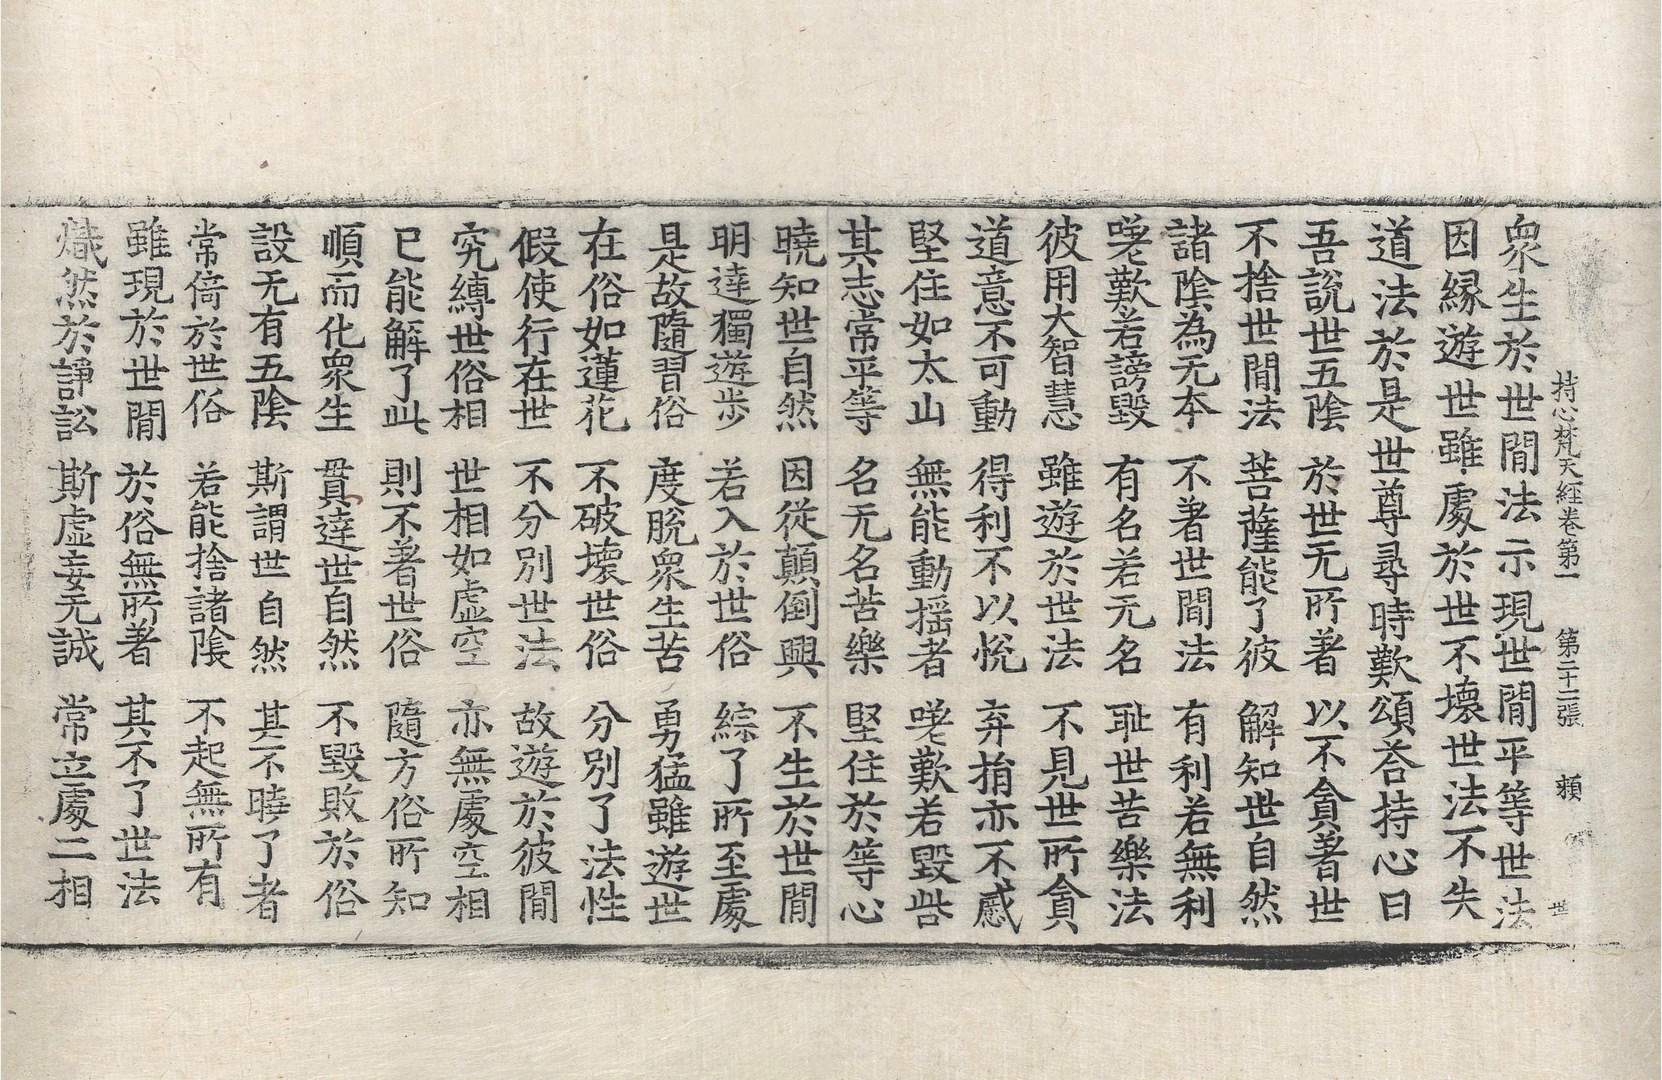 持心梵天經卷第一 第二十二張 頼
衆生於世間法示現世間平等世法
因縁遊世雖處於世不壞世法不失
道法於是世尊尋時歎頌荅持心曰
吾説世五陰 於世无所著 以不貪著世
不捨世間法 菩薩能了彼 解知世自然
諸陰為无夲 不著世間法 有利若無利
嗟歎若謗毀 有名若无名 耻世苦樂法
彼用大智慧 雖遊於世法 不見世所貪
道意不可動 得利不以悅 弃捐亦不慼
堅住如太山 無能動揺者 嗟歎若毀呰
其志常平等 名无名苦樂 堅住於等心
曉知世自然 因從顛倒興 不生於世間
明達獨遊歩 若入於世俗 綜了所至處
是故隨習俗 度脫衆生苦 勇猛雖遊世
在俗如蓮花 不破壞世俗 分別了法性
假使行在世 不分別世法 故遊於彼間
究縛世俗相 世相如虛空 亦無處空相
已能解了此 則不著世俗 隨方俗所知
順而化衆生 貫達世自然 不毀敗於俗
設无有五陰 斯謂世自然 其不曉了者
常倚於世俗 若能捨諸陰 不起無所有
雖現於世間 於俗無所著 其不了世法
熾然於諍訟 斯虛妄无誠 常立處二相